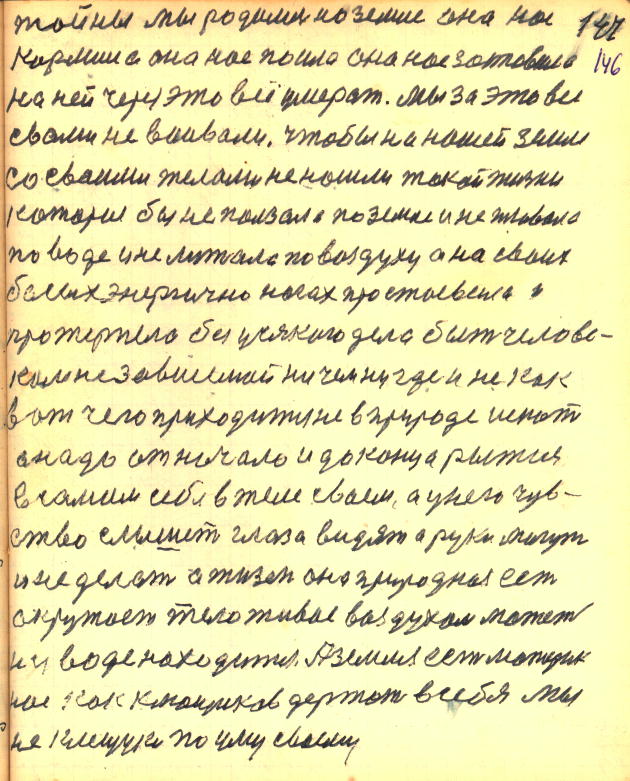 тойны мы родили на земле она нас 147
кормила она нас поила она нас заставила 146
на ней через это всё умерат. мы за это все
с вами не воивали. чтобы на нашей земли
со своими телами не нашли такой жизни
которые бы не ползала по земле и не плавала
по воде и не литала по воздуху а на своих
босых энергично ногах простаевела и
протертела без усякого дела быт челове-
ком не зовисемой ни чем ни где и не как
вот чего приходится не в природе искат
а надо от начало и до конца рытися
в самим себя в теле своем, а у него чув-
ство слышит глаза видят а руки могут
и не делат а жизня она природная ест
окружает тело живое воздухом может
и у воде находится. А земля ест материк
нас как держат в себя мы
не по уму своему